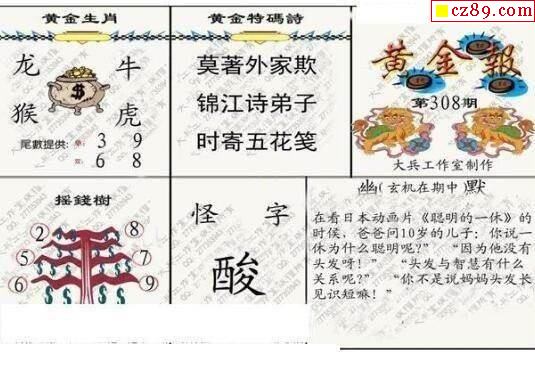 cz89.com
黄金生肖
龙 牛
猴 虎
$
尾數提供:單: 3 9
双: 6 8
黄金特碼詩
莫著外家欺
锦江诗弟子
时寄五花笺
黄金報
第308期
大兵工作室制作
摇錢樹
2 5
8 9
1 6
怪 字
酸
幽(玄机在期中)默
在看日本动画片《聪明的一休》的
时侯，爸爸问10岁的儿子：你说一
休为什么聪明呢?” “因为他没有
头发呀！” “头发与智慧有什么
关系呢?” “你不是说妈妈头发长
见识短嘛！”